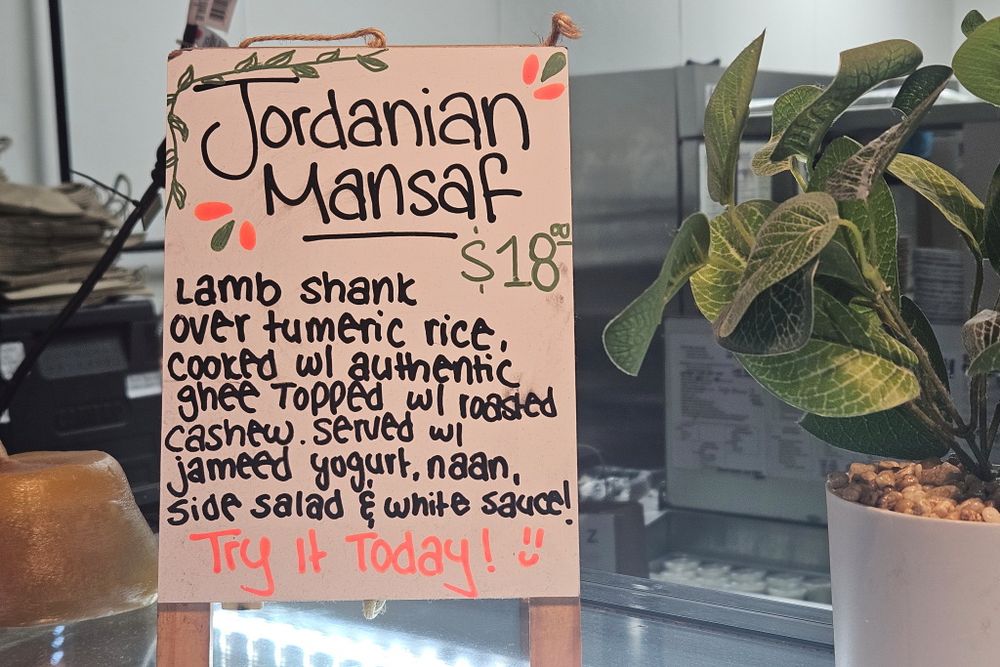 Jordanian
Mansaf
$18.00
Lamb shank
over tumeric rice,
cooked w/ authentic
ghee Topped w/ roasted
cashew. served w/
jameed yogurt, naan,
side salad & white sauce!
Try It Today!